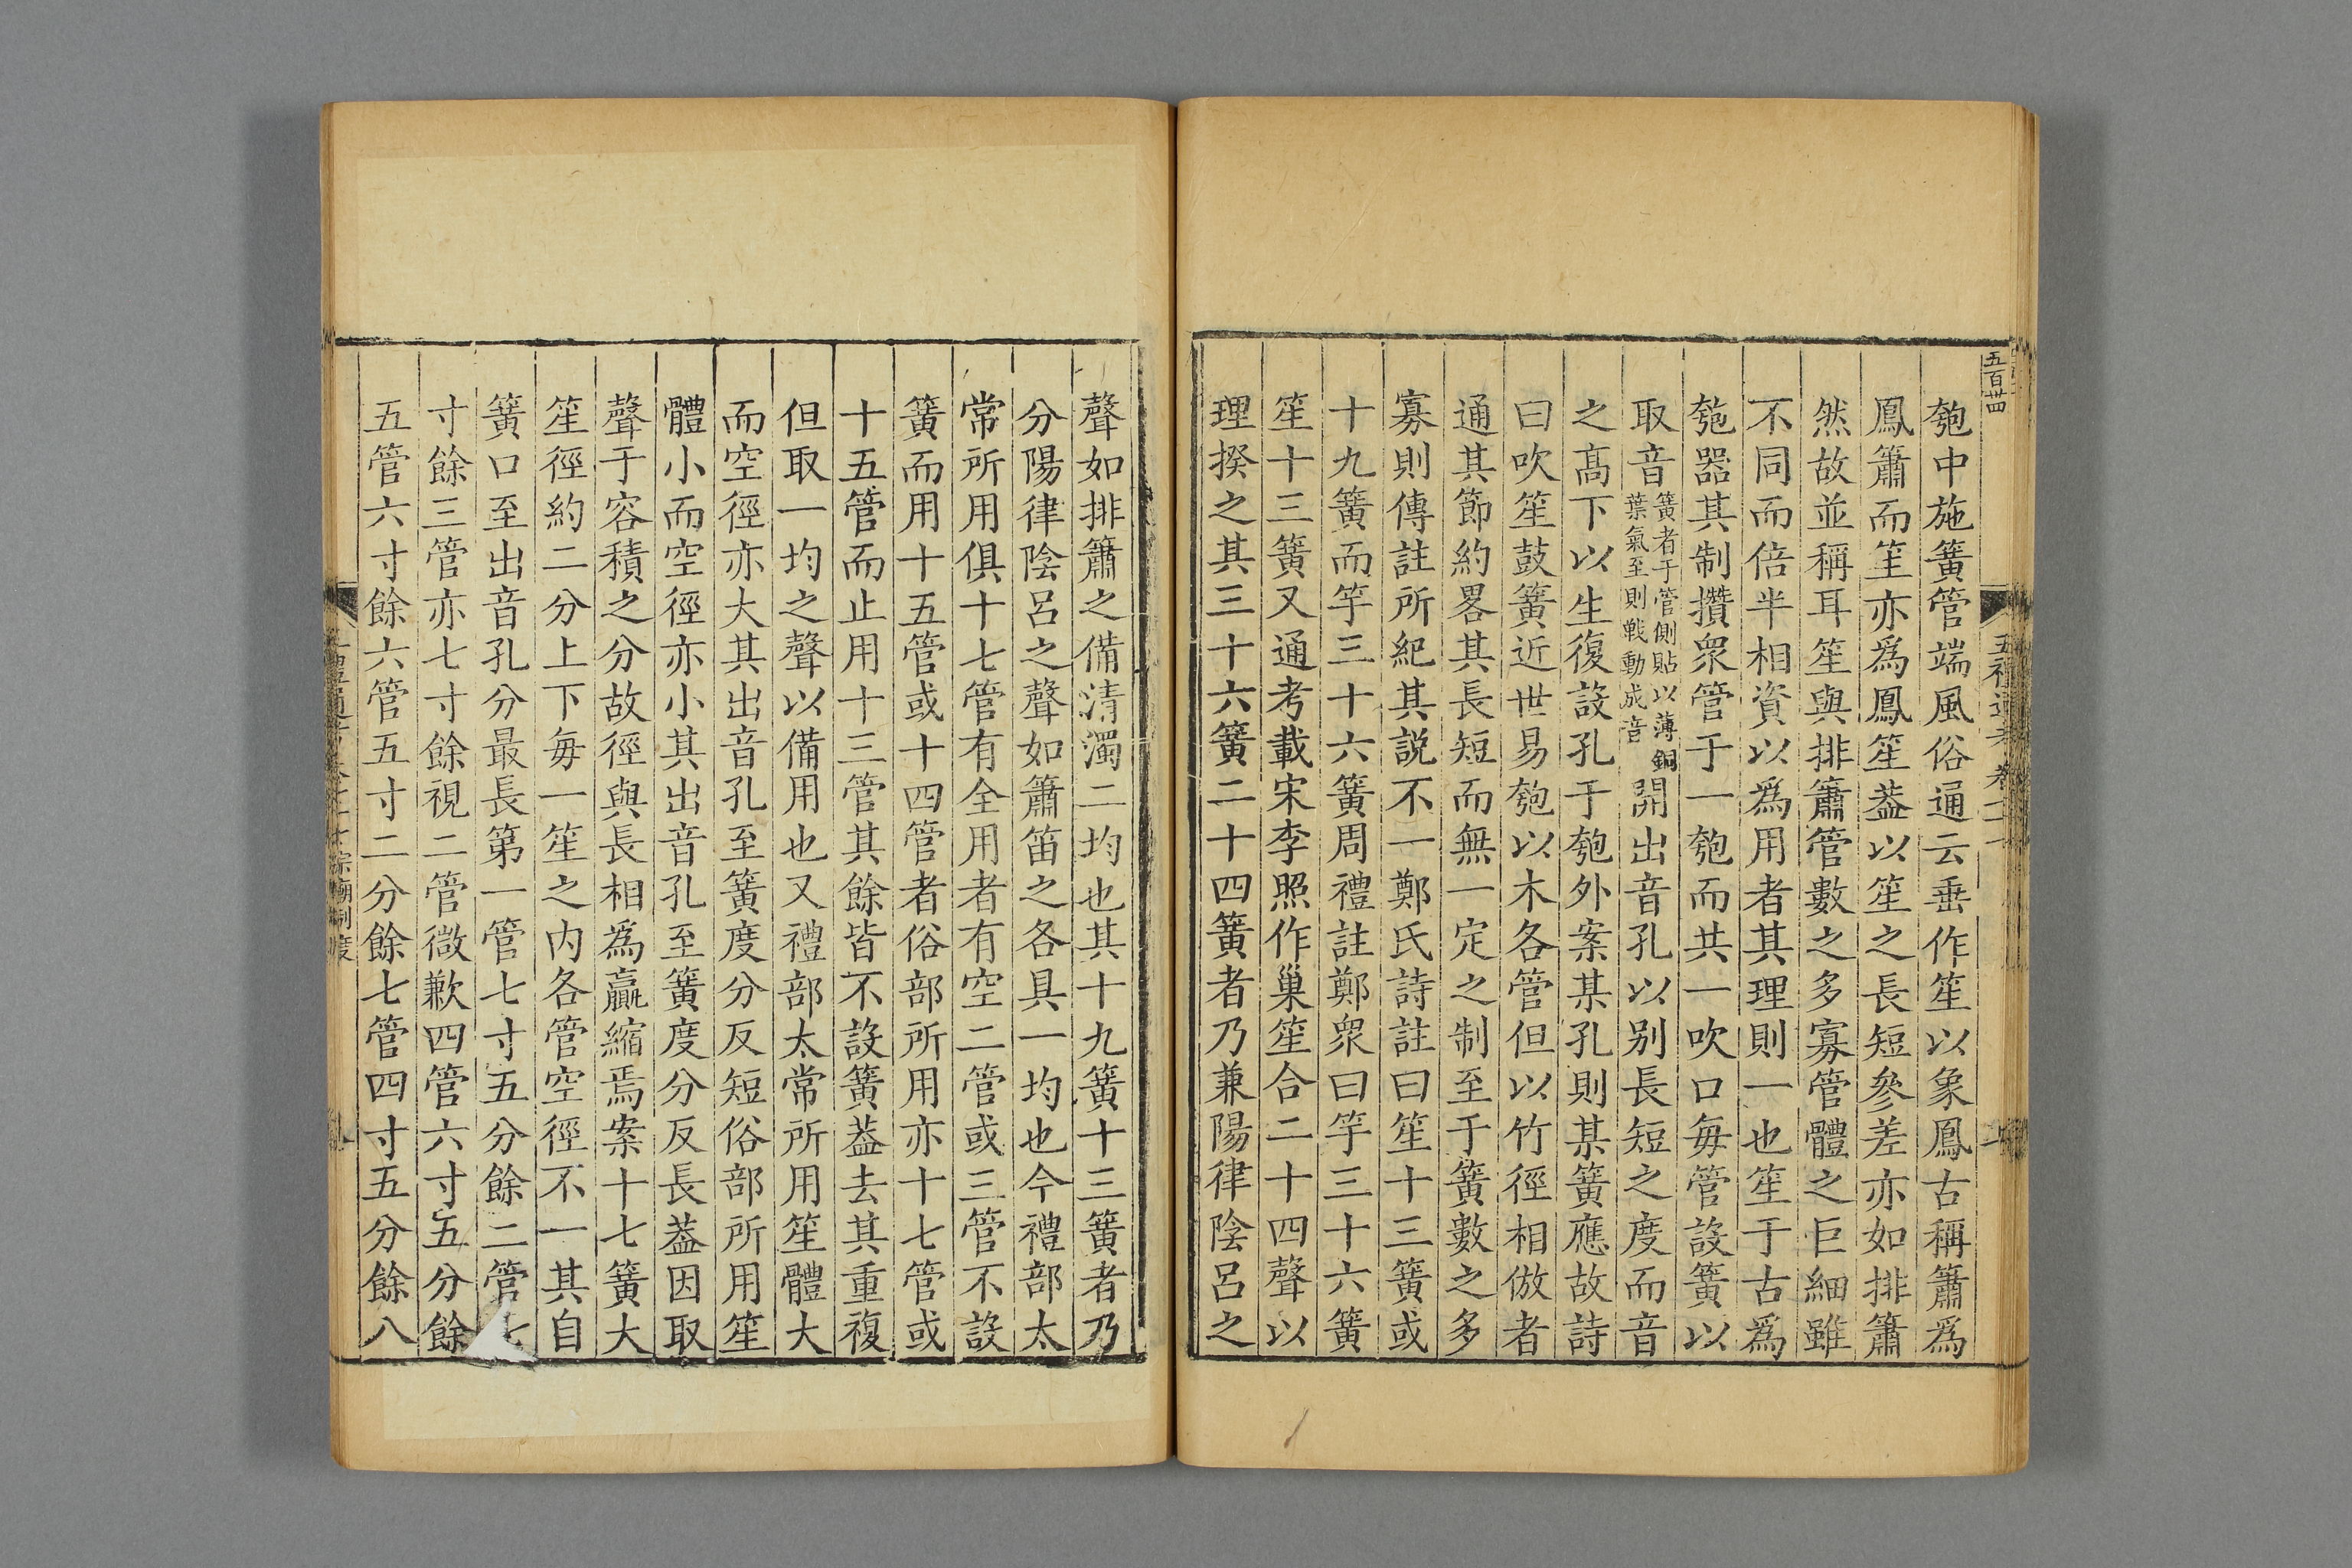 五百卅四
匏中施簧管端風俗通云垂作笙以象鳳古稱簫爲
鳳簫而笙亦爲鳳笙葢以笙之長短參差亦如排簫
然故並稱耳笙與排簫管數之多寡管體之巨細雖
不同而倍半相資以爲用者其理則一也笙于古爲
匏器其制攢衆管于一匏而共一吹口每管設簧以
取音
簧者于管側貼以薄銅
葉氣至則戰動成音
開出音孔以别長短之度而音
之髙下以生復設孔于匏外案某孔則某簧應故詩
曰吹笙鼓簧近世易匏以木各管但以竹徑相倣者
通其節約畧其長短而無一定之制至于簧數之多
寡則傳註所紀其説不一鄭氏詩註曰笙十三簧或
十九簧而竽三十六簧周禮註鄭衆曰竽三十六簧
笙十三簧又通考載宋李照作巢笙合二十四聲以
理揆之其三十六簧二十四簧者乃兼陽律陰呂之
聲如排簫之備清濁二均也其十九簧十三簧者乃
分陽律陰呂之聲如簫笛之各具一均也今禮部太
常所用俱十七管有全用者有空二管或三管不設
簧而用十五管或十四管者俗部所用亦十七管或
十五管而止用十三管其餘皆不設簧葢去其重複
但取一均之聲以備用也又禮部太常所用笙體大
而空徑亦大其出音孔至簧度分反短俗部所用笙
體小而空徑亦小其出音孔至簧度分反長葢因取
聲于容積之分故徑與長相爲贏縮焉案十七簧大
笙徑約二分上下每一笙之内各管空徑不一其自
簧口至出音孔分最長第一管七寸五分餘二管七
寸餘三管亦七寸餘視二管微歉四管六寸五分餘
五管六寸餘六管五寸二分餘七管四寸五分餘八
宗廟制度